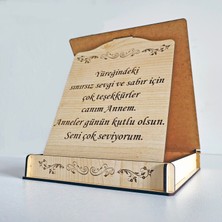 Yüreğindeki
sınırsız sevgi ve sabır için
çok teşekkürler
canım Annem.
Anneler günün kutlu olsun.
Seni çok seviyorum.